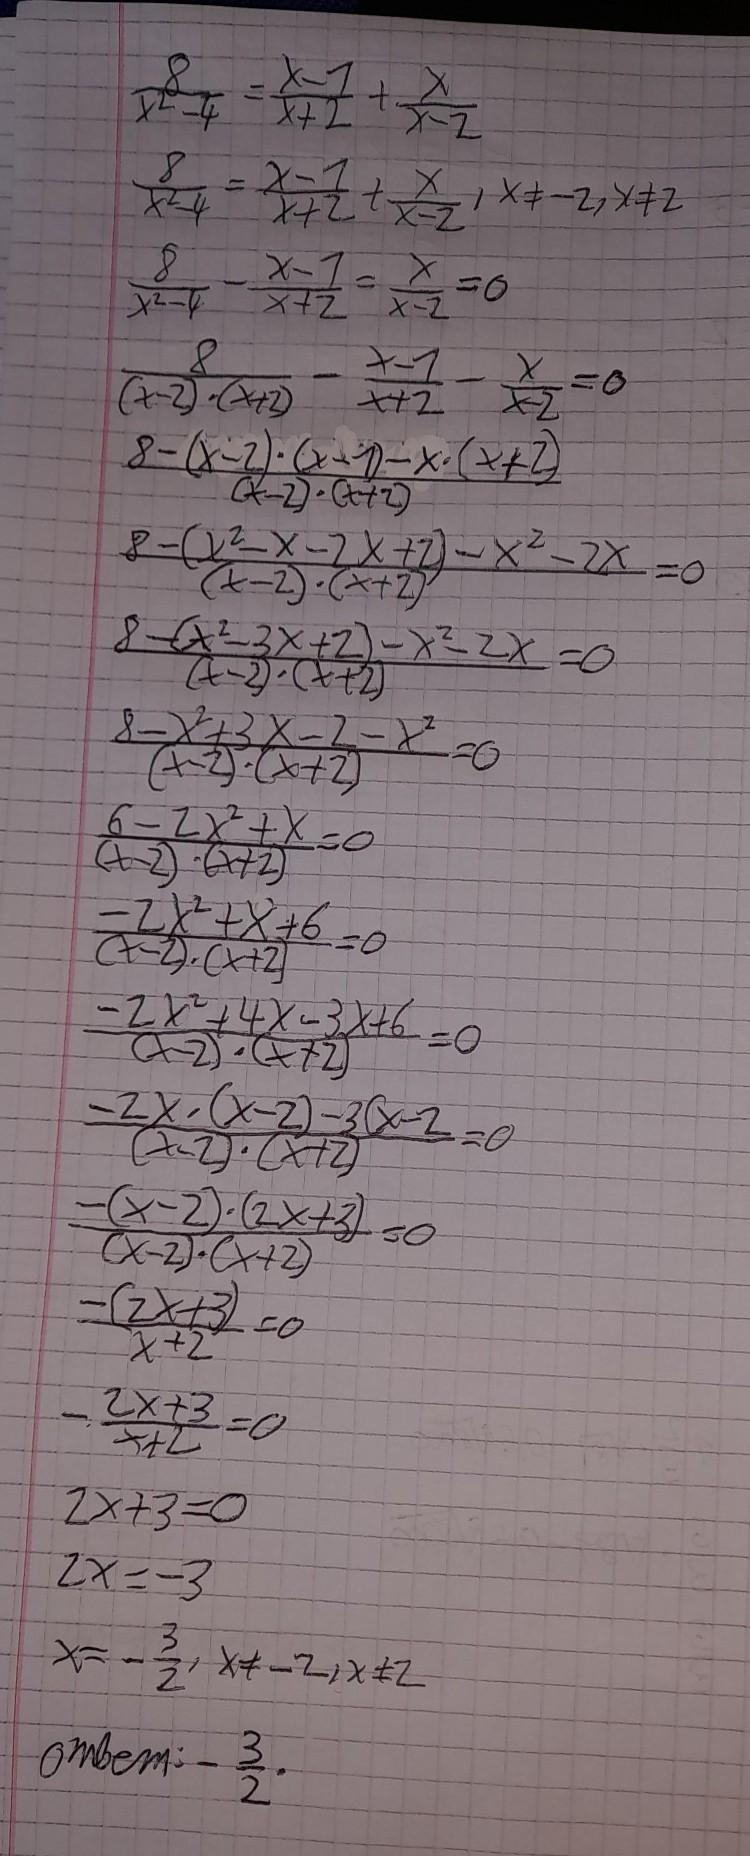 8/(x²-4) = (x-1)/(x+2) + x/(x-2)
8/(x²-4) = (x-1)/(x+2) + x/(x-2), x≠-2, x≠2
8/(x²-4) - (x-1)/(x+2) = x/(x-2) = 0
8/((x-2)·(x+2)) - (x-1)/(x+2) - x/(x-2) = 0
(8-(x-2)·(x-1)-x·(x+2))/((x-2)·(x+2))
(8-(x²-x-2x+2)-x²-2x)/((x-2)·(x+2)) = 0
(8-(x²-3x+2)-x²-2x)/((x-2)·(x+2)) = 0
(8-x²+3x-2-x²)/((x-2)·(x+2)) = 0
(6-2x²+x)/((x-2)·(x+2)) = 0
(-2x²+x+6)/((x-2)·(x+2)) = 0
(-2x²+4x-3x+6)/((x-2)·(x+2)) = 0
(-2x·(x-2)-3(x-2)/((x-2)·(x+2)) = 0
(-(x-2)·(2x+3))/((x-2)·(x+2)) = 0
(-(2x+3))/(x+2) = 0
- (2x+3)/(x+2) = 0
2x+3=0
2x=-3
x=-3/2, x≠-2, x≠2
ответ: -3/2.